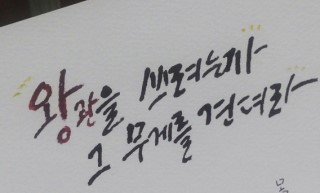 왕관을 쓰려는자
그 무게를 견뎌라